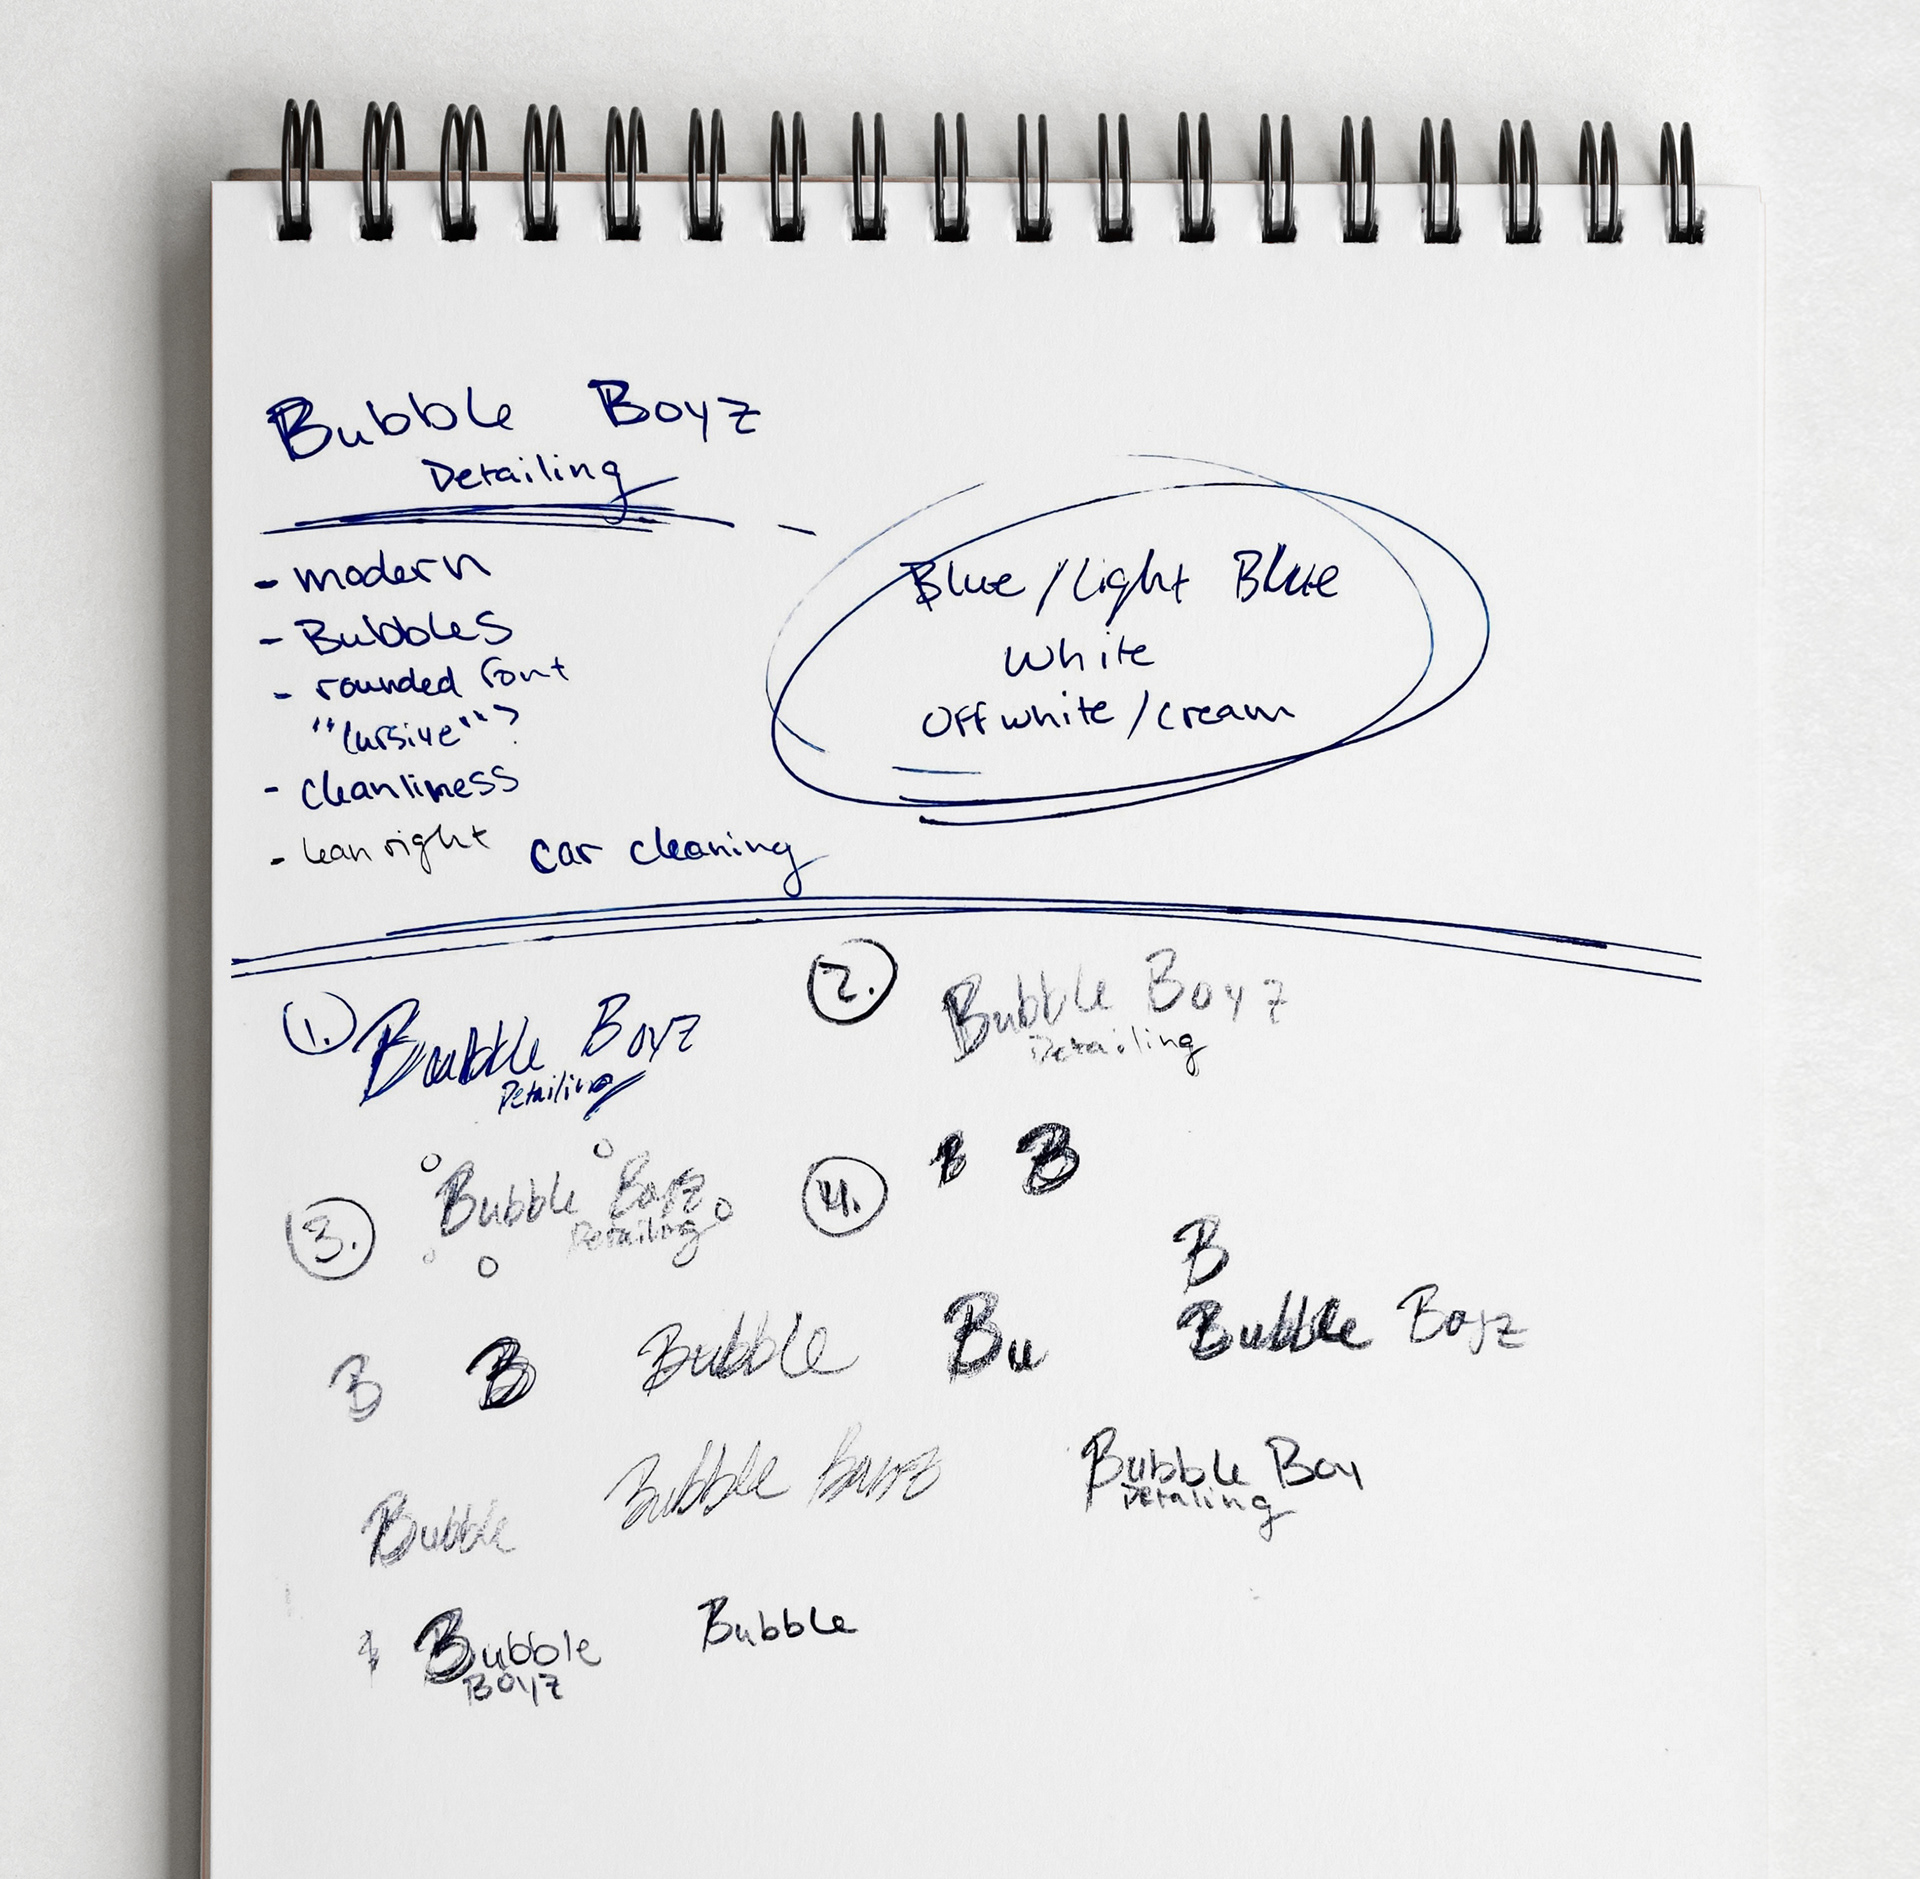 Bubble Boyz
Detailing
- modern
- Bubbles
- rounded font
"Cursive"?
- cleanliness
- lean right car cleaning
Blue / Light Blue
White
Off white / cream
1. Bubble Boyz
Detailing
2. Bubble Boyz
Detailing
3. Bubble Boyz
Detailing
4. B B
B
B B Bubble Bu Bubble Boyz
Bubble Bubble Boyz Bubble Boy
Detailing
Bubble Bubble
Boyz